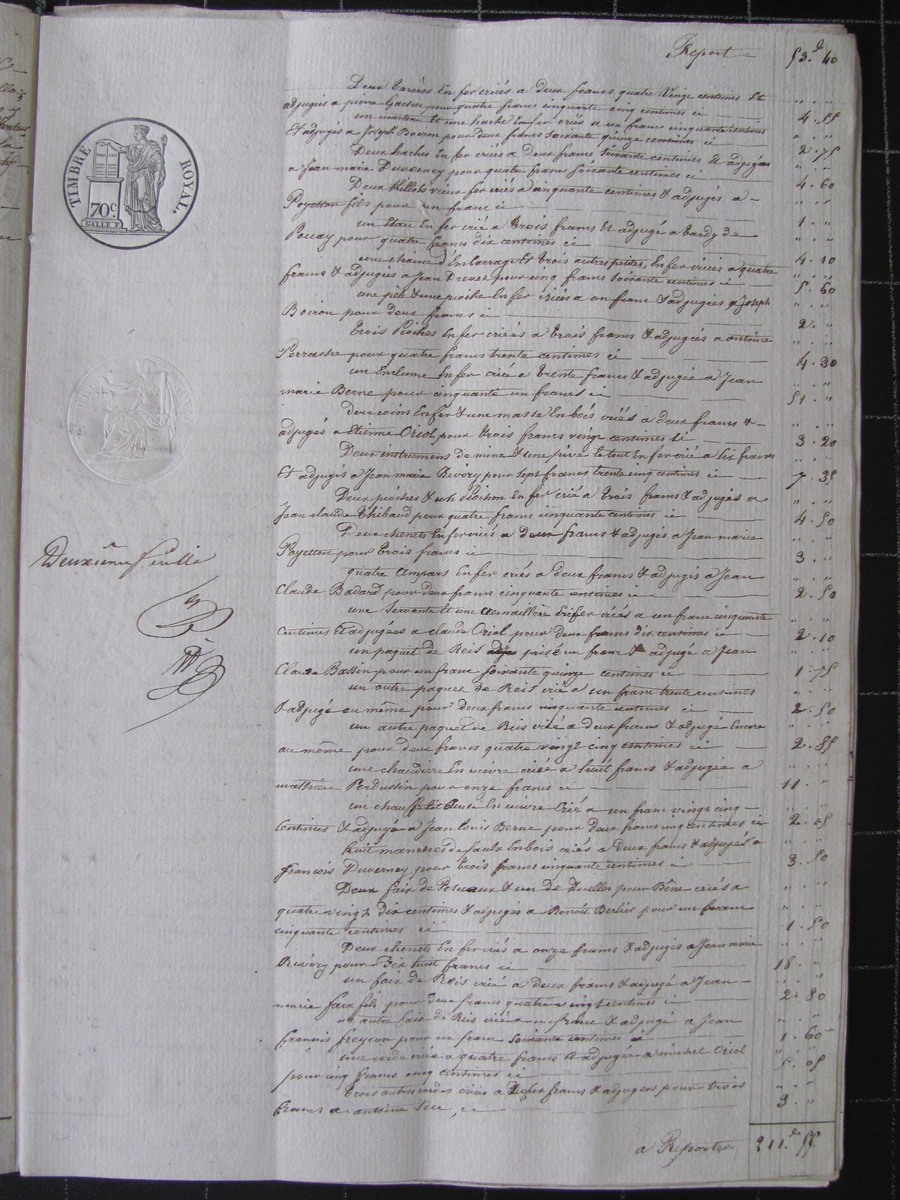 Report 53.40
Deux tarères En fer criés a Deux francs quatre vingt centimes Et
adjugés a pierre Gachet pour quatre francs cinquante cinq centimes ci 4.55
un marteau Et une hache En fer criés a un franc cinquante centimes
Et adjugés a Joseph Boiron pour deux francs soixante quinze centimes ci 2.75
Deux haches En fer criées a deux francs soixante centimes & adjugées
a Jean marie Duverney pour quatre francs soixante centimes ci 4.60
Deux vieux fer criés a cinquante centimes & adjugés a
Poyeton fils pour un franc ci 1.
un Etau En fer crié a trois francs & adjugé a tardy de
pour quatre francs dix centimes ci 4.10
une chaine d'Embarrage Et trois autres petites, En fer criées a quatre
francs & adjugées a Jean pour cinq francs soixante centimes ci 5.60
une pèle & une pioche En fer criées a un franc & adjugées a Joseph
Boiron pour deux francs ci 2.
trois pioches En fer criées a trois francs & adjugées a antoine
Perrache pour quatre francs trente centimes ci 4.30
un Enclume En fer criée a trente francs & adjugée a Jean
marie Berne pour cinquante un francs ci 51.
deux coins En fer & une masse En bois criés a deux francs &
adjugés a Etienne Oriol pour trois francs vingt centimes ci 3.20
Deux instrumens de mine & une le tout En fer crié a six francs
Et adjugés a Jean marie Revory pour sept francs trente cinq centimes ci 7.35
Deux pioches & un En fer crié a trois francs & adjugés a
Jean claude Thibaud pour quatre francs cinquante centimes ci 4.50
Deux chenets En fer criés a deux francs & adjugés a Jean marie
Poyeton pour trois francs ci 3.
quatre En fer criés a deux francs & adjugés a Jean
Claude Badard pour deux francs cinquante centimes ci 2.50
une Servante Et une cremaillère En fer criés a un franc cinquante
centimes Et adjugées a claude Oriol pour deux francs dix centimes ci 2.10
un paquet de Reis un franc & adjugé a Jean
Claude Bassin pour un franc soixante quinze centimes ci 1.75
un autre paquet de Reis crié a un franc trente centimes
& adjugé au même pour deux francs cinquante centimes ci 2.50
un autre paquet de Reis crié a deux francs & adjugé Encore
au même pour deux francs quatre vingt cinq centimes ci 2.85
une chaudière En cuivre criée a huit francs & adjugée a
mathieu Perdustin pour onze francs ci 11.
un chauffe lit En cuivre Crié a un franc vingt cinq
Centimes & adjugé a Jean Louis Berne pour deux francs cinq centimes ci 2.05
huit manches de faulx En bois criés a deux francs & adjugés a
françois Duverney pour trois francs cinquante centimes ci 3.50
Deux faix de & un de pour criés a
quatre vingt dix centimes & adjugés a Benoit Berlier pour un franc
cinquante centimes ci 1.50
Deux chenets En fer criés a onze francs & adjugés a Jean marie
Revory pour Dix huit francs ci 18.
un faix de Reis crié a deux francs & adjugé a Jean
marie faix fils pour deux francs quatre vingt centimes ci 2.80
un autre faix de Reis crié a un franc & adjugé a Jean
francois freycon pour un franc soixante centimes ci 1.60
une corde criée a quatre francs & adjugée a michel Oriol
pour cinq francs cinq centimes ci 5.05
trois autres cordes criées a Deux francs & adjugées pour trois
francs a antoine ci 3.
a Reporter 211.55
TIMBRE ROYAL.
70c.
Deuxième feuille